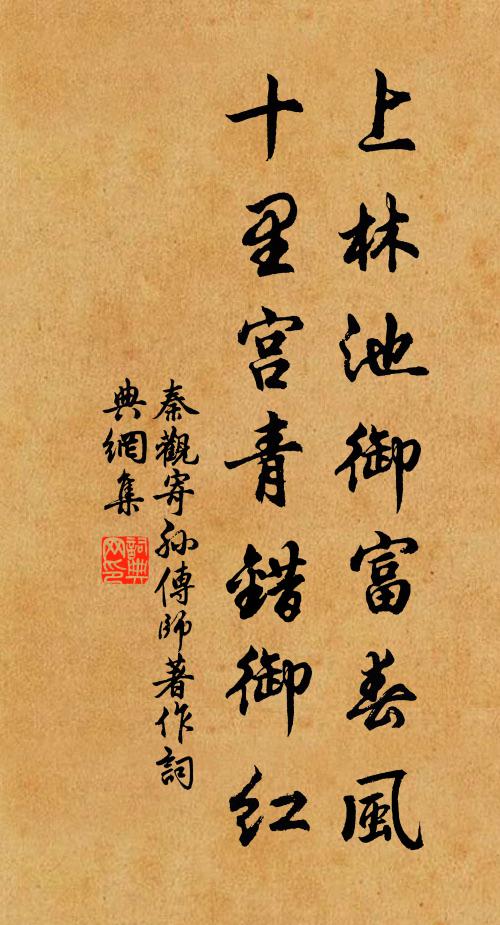 上林池御富春風
十里宮青錯御紅
秦觀寄孫傳師著作詞
典網集
詞典網印